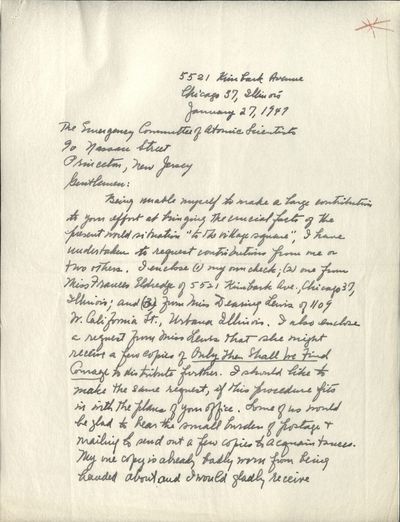 5521 Kimbark Avenue
Chicago 37, Illinois
January 27, 1947
The Emergency Committee of Atomic Scientists
90 Nassau Street
Princeton, New Jersey
Gentlemen:
Being unable myself to make a large contribution
to your effort at bringing the crucial facts of the
present world situation "to the village square", I have
undertaken to request contributions from me or
two others. I enclose (1) my own check; (2) one from
Miss Frances Eldredge of 5521 Kimbark Ave., Chicago 37,
Illinois; and (3) from Miss Dearing Lewis of 1109
W. California St., Urbana Illinois. I also enclose
a request from Miss Lewis that she might
receive a few copies of Only Then Shall We Find
Courage to distribute further. I should like to
make the same request, if this procedure fits
in with the plans of your office. Some of us would
be glad to bear the small burden of postage +
mailing to send out a few copies to acquaintances.
My one copy is already badly worn from being
handed about and I would gladly receive